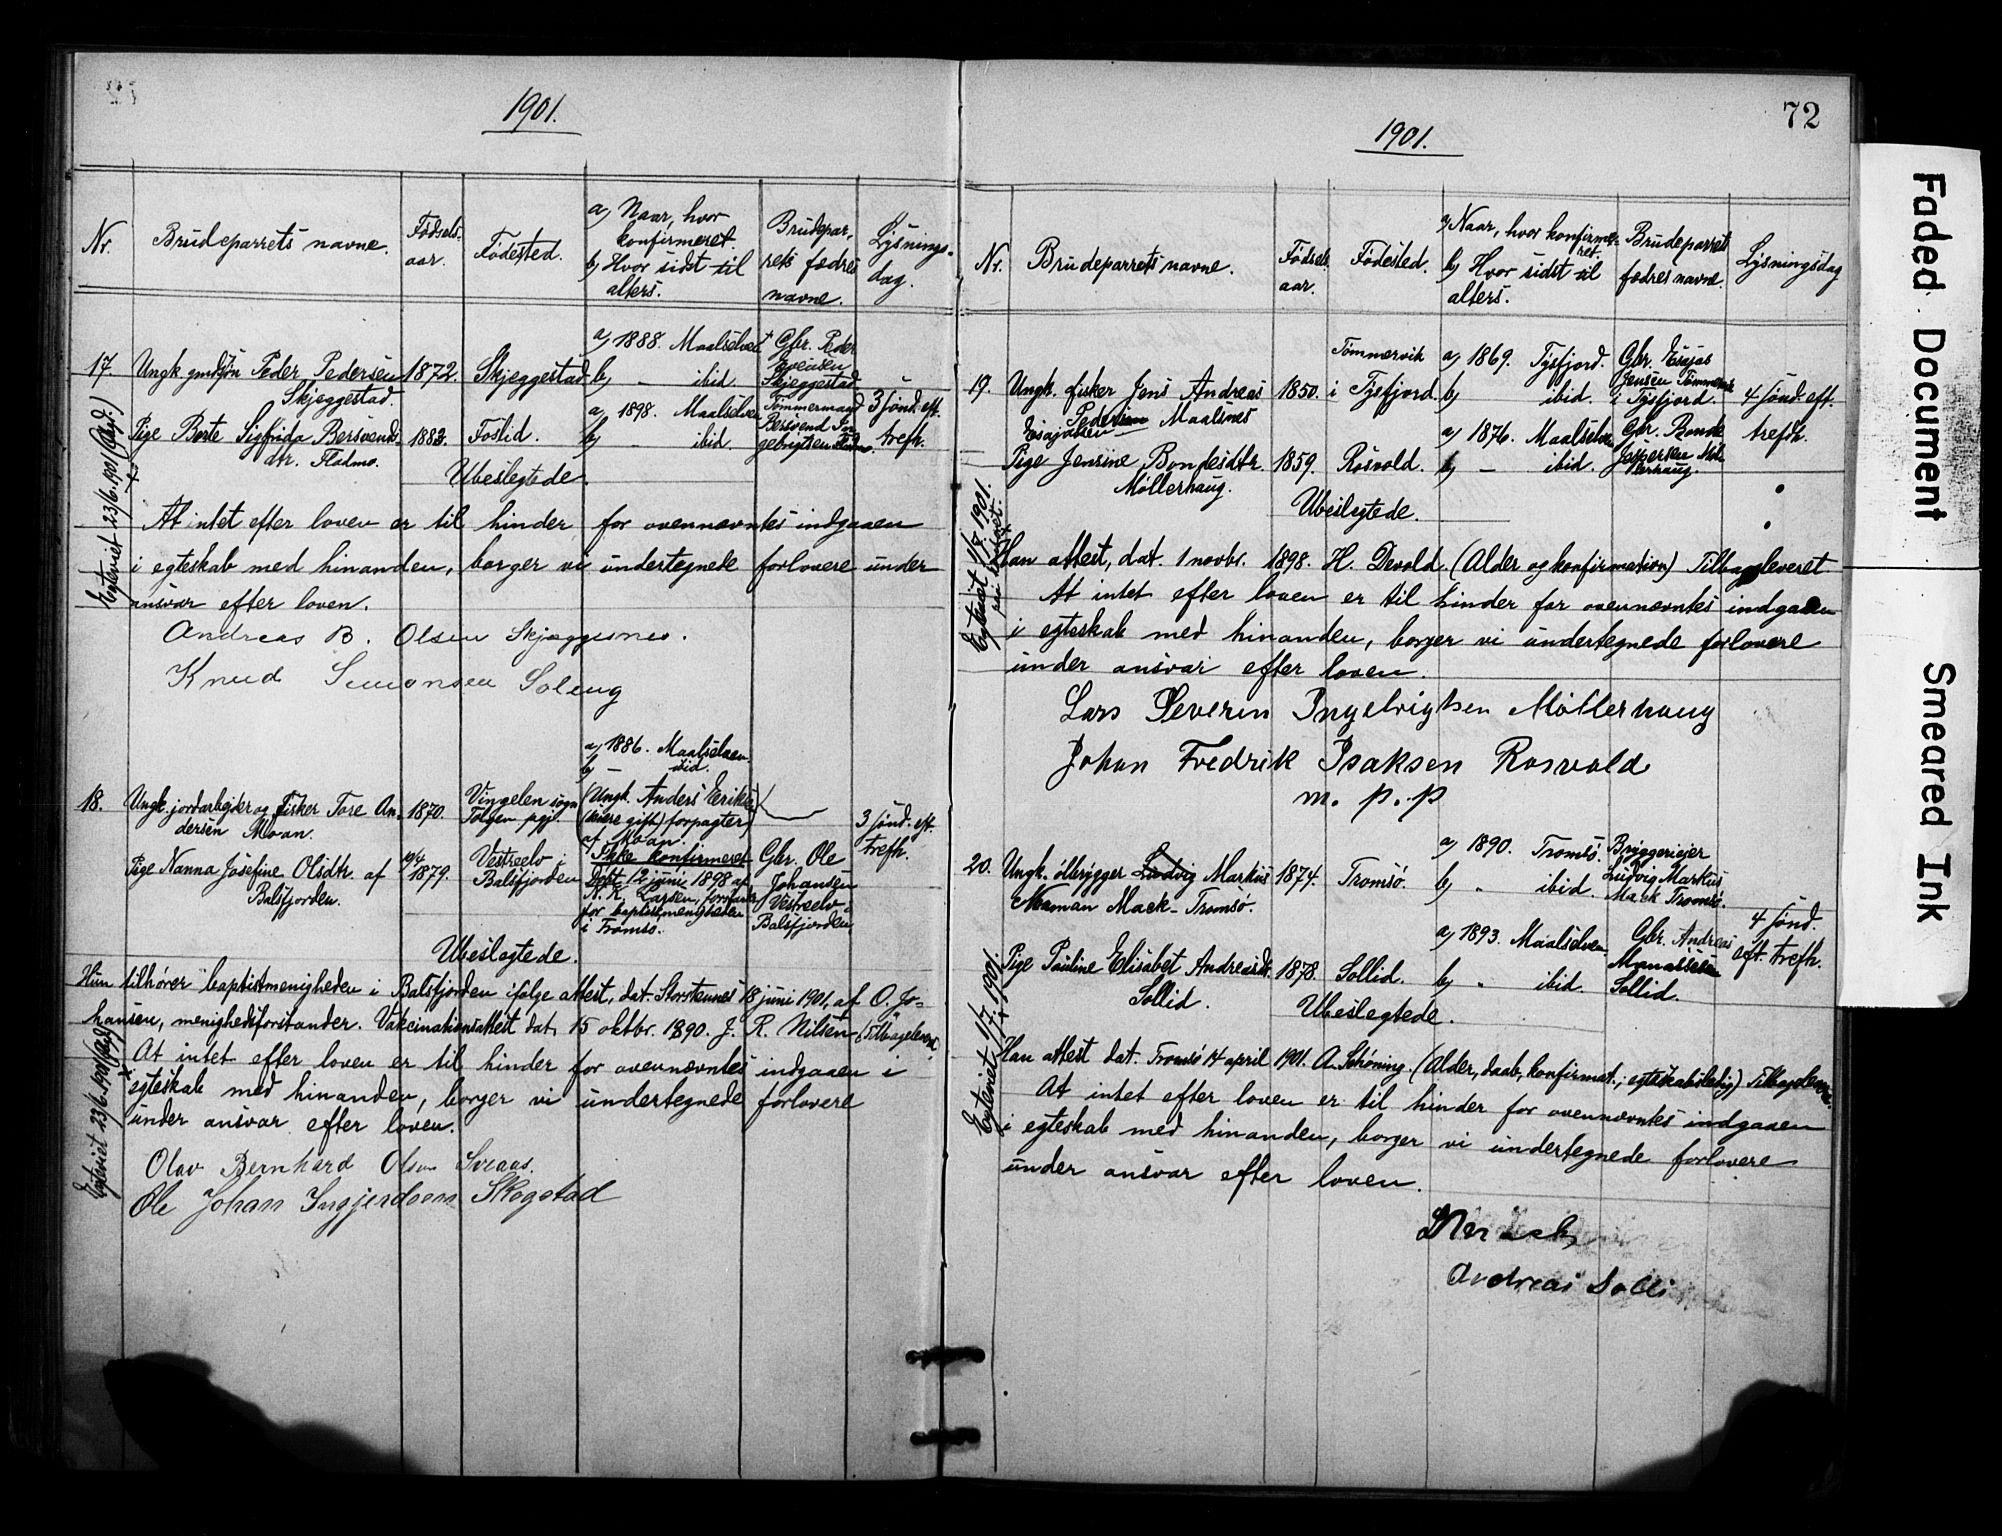 1901.
Nr. Brudeparrets navne. Fødsels-
aar. Fødested. a) Naar, hvor
konfirmeret.
b) Hvor sidst til
alters. Brudepar-
rets fædres
navne. Lysnings-
dag.
17. Ungk. gmdsøn Peder Pedersen 1872. Skjeggestad a) 1888. Maalselven
b) - ibid. Gbr. Peder
Evensen
Skjeggestad
Skjeggestad.
Pige Berte Sigfrida Bersvends- 1883. Foslid. a) 1898. Maalselven
b) ibid. Tømmermand
Bersvend In-
gebrigtsen 3 sønd. eft.
trefh.
dtr. Flødmo.
Ubeslegtede.
At intet efter loven er til hinder for ovennævntes indgaaen
i egteskab med hinanden, borger vi undertegnede forlovere under
ansvar efter loven.
Andreas B. Olsen Skjæggesnes.
Knud Simonsen Soleng
Egteviet 23/6. 1901
18. Ungk. jordarbejder og fisker Tore An- 1870. Vingelen sogn
Tolgen pgj. a) 1886. Maalselven
b) - ibid.
(Ungk. Anders Eriksen
(senere gift) forpagter
af Moan. 3 sønd. eft.
trefh.
dersen Moan.
Pige Nanna Josefine Olsdtr. af 10/4
1879. Vestreelv i
Balsfjorden Ikke konfirmeret
Døbt 12 juni 1898 af
Larsen, forstander
for baptistmenigheden
i Tromsø. Gbr. Ole
Johansen
Vestreelv
Balsfjorden
Balsfjorden.
Ubeslegtede.
Hun tilhører baptistmenigheden i Balsfjorden ifølge attest, dat. Storstennes 18 juni 1901, af O. Jo-
hansen, menighedsforstander. Vakcinationsattest dat. 15 oktbr. 1890. J. R. Nilsen (Tilbageleveret)
At intet efter loven er til hinder for ovennævntes indgaaen i
egteskab med hinanden, borger vi undertegnede forlovere
under ansvar efter loven.
Olav Bernhard Olsen
Ole Johan Ingjerdsen Skogstad
Egteviet 23/6. 1901
72
1901.
Nr. Brudeparrets navne. Fødsels-
aar. Fødested. a) Naar, hvor konfirme-
ret.
b) Hvor sidst til
alters. Brudeparrets
fædres navne. Lysningsdag
19. Ungk. fisker Jens Andreas 1850. Tømmervik
i Tysfjord. a) 1869. Tysfjord.
b) ibid. Gbr. Esajas
Jensen Tømmervik
i Tysfjord. 4 sønd. eft.
trefh.
Pedersen Maalsnes
Esajassen
Pige Jensine Bondesdtr. 1859. Rosvold. a) 1876. Maalselven
b) - ibid. Gbr. Bonde
Jespersen Møl-
lerhaug.
Møllerhaug.
Ubeslegtede.
Han attest, dat. 1 novbr. 1898. H. Devold. (Alder og konfirmation) Tilbageleveret
At intet efter loven er til hinder for ovennævntes indgaaen
i egteskab med hinanden, borger vi undertegnede forlovere
under ansvar efter loven.
Lars Severin Ingebrigtsen Møllerhaug
Johan Fredrik Isaksen Rosvold
m. p. p
Egteviet 1/7. 1901.
20. Ungk. ølbrygger Ludvig Markus 1874. Tromsø. a) 1890. Tromsø.
b) " ibid. Bryggeriejer
Ludvig Markus
Mack Tromsø.
Nerman Mack - Tromsø.
Pige Pauline Elisabet Andreasdt. 1878. Sollid. a) 1893. Maalselven
b) " ibid. Gbr. Andreas
Manassesen
Sollid. 4 sønd.
eft. trefh.
Sollid.
Ubeslegtede.
Han attest dat. Tromsø 14 april 1901. A. Schøning. (Alder, daab, konfirmat.; egteskabsledig) Tilbagelev.
At intet efter loven er til hinder for ovennævntes indgaaen
i egteskab med hinanden, borger vi undertegnede forlovere
under ansvar efter loven.
Andreas Solli
Egteviet 1/7. 1901.
Faded Document
Smeared Ink